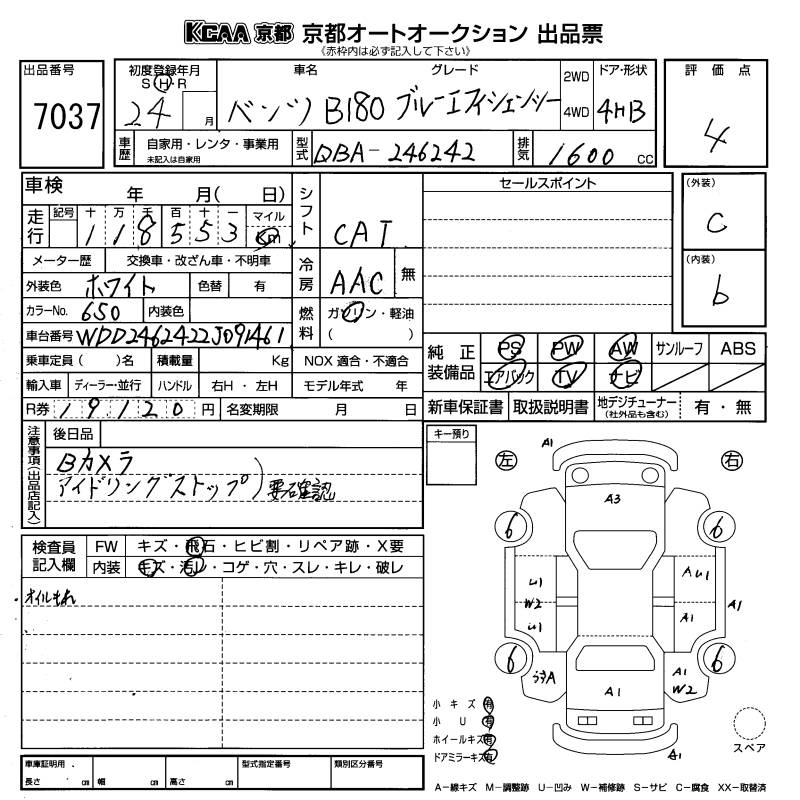 KCAA 京都 京都オートオークション 出品票
《赤枠内は必ず記入して下さい》
出品番号 7037
初度登録年月 S H R 24 月
車名 グレード
ベンツ B180 ブルーエフィシェンシー
2WD 4WD
ドア・形状 4HB
評価点 4
車歴 自家用・レンタ・事業用
未記入は自家用
型式 DBA-246242
排気 1600 CC
車検 年 月( 日)
シフト CAT
セールスポイント
(外装) C
走行 記号 十 万 千 百 十 一 マイル
118553 Km
メーター歴 交換車・改ざん車・不明車
冷房 AAC 無
(内装) b
外装色 ホワイト 色替 有
カラーNo. 650 内装色
燃料 ガソリン・軽油
( )
車台番号 WDD2462422J091461
乗車定員( )名 積載量 Kg NOX 適合・不適合
純正装備品 PS PW AW サンルーフ ABS
エアバック TV ナビ
輸入車 ディーラー・並行 ハンドル 右H・左H モデル年式 年
R券 19120 円 名変期限 月 日
新車保証書 取扱説明書 地デジチューナー 有・無
(社外品も含む)
注意事項(出品店記入)
後日品
Bカメラ
アイドリングストップ) 要確認
キー預り
左 右
A1
A3
6 6
U1 AU1
W2 A1
U1 A1
6 6
A1
W2
A1
A1
検査員記入欄
FW キズ・飛石・ヒビ割・リペア跡・X要
内装 キズ・汚レ・コゲ・穴・スレ・キレ・破レ
オイルもれ
小キズ 有
小U 有
ホイールキズ 有
ドアミラーキズ 有
スペア
車庫証明用.
長さ cm 幅 cm 高さ cm
型式指定番号
類別区分番号
A-線キズ M-調整跡 U-凹み W-補修跡 S-サビ C-腐食 XX-取替済